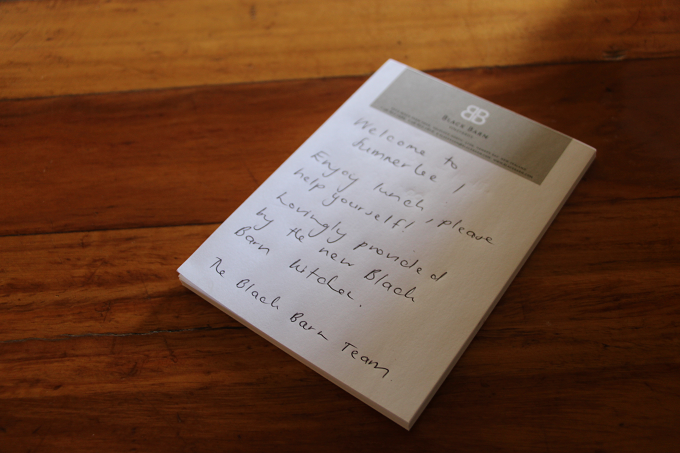 BB
BLACK BARN
Welcome to
Summerlee!
Enjoy lunch, please
help yourself!
Lovingly provided
by the new Black
Barn Kitchen.
The Black Barn Team